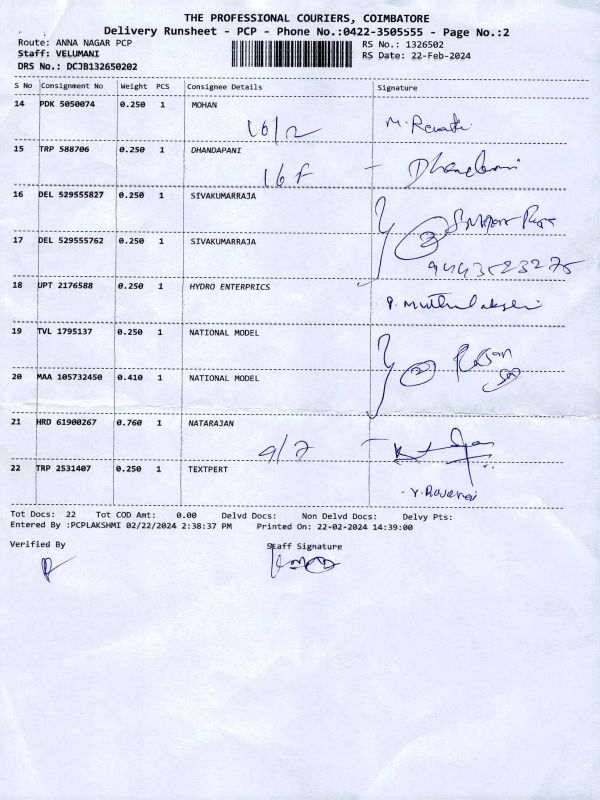 THE PROFESSIONAL COURIERS, COIMBATORE
Delivery Runsheet - PCP - Phone No.:0422-3505555 - Page No.:2
Route: ANNA NAGAR PCP
RS No.: 1326502
Staff: VELUMANI
RS Date: 22-Feb-2024
DRS No.: DCJB132650202
S No Consignment No Weight PCS Consignee Details Signature
14 PDK 5050074 0.250 1 MOHAN
16/2 M. Revathi
15 TRP 588706 0.250 1 DHANDAPANI
16 F
16 DEL 529555827 0.250 1 SIVAKUMARRAJA
17 DEL 529555762 0.250 1 SIVAKUMARRAJA
2
9443523275
18 UPT 2176588 0.250 1 HYDRO ENTERPRICS
P. Muthulakshmi
19 TVL 1795137 0.250 1 NATIONAL MODEL
2
20 MAA 105732450 0.410 1 NATIONAL MODEL
21 HRD 61900267 0.760 1 NATARAJAN
9/7
22 TRP 2531407 0.250 1 TEXTPERT
Tot Docs: 22 Tot COD Amt: 0.00 Delvd Docs: Non Delvd Docs: Delvy Pts:
Entered By :PCPLAKSHMI 02/22/2024 2:38:37 PM Printed On: 22-02-2024 14:39:00
Verified By Staff Signature